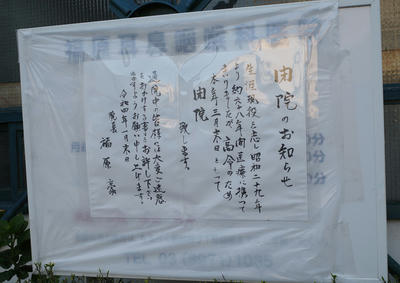 閉院のお知らせ
生涯現役と志し昭和二十九年
より約六十八年間医療に携って
まいりましたが、高令のため
本年三月末日をもって
閉院
致します。
通院中の皆様には大変ご迷惑
をおかけする事をお許し下さい
ますようお願い申し上げます。
令和四年 月末日
院長 福原
TEL 03